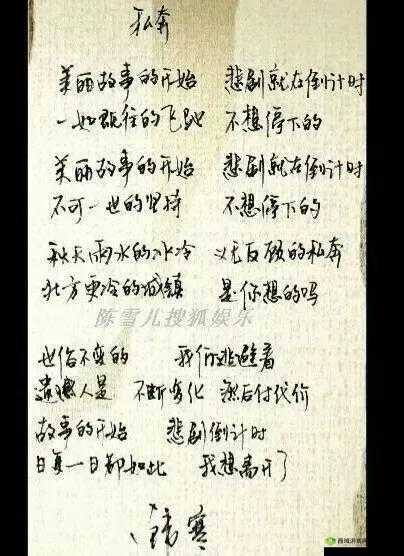 私奔
美丽故事的开始 悲剧就在倒计时
一如既往的飞驰 不想停下的
美丽故事的开始 悲剧就在倒计时
不可一世的坚持 不想停下的
秋天雨水的冰冷 义无反顾的私奔
北方更冷的城镇 是你想的吗
陈雪儿搜狐娱乐
世俗不变的 我们逃避着
遗憾人是 不断劣化 然后付代价
故事的开始 悲剧倒计时
日复一日都如此 我想离开了